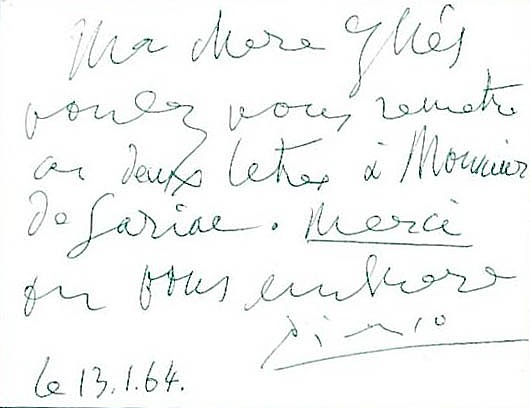 Ma chere Ynès
voulez vous remetre
ces deux letres à Monsieur
de Sariac. Merci
on vous embrase
Picasso
le 13.1.64.